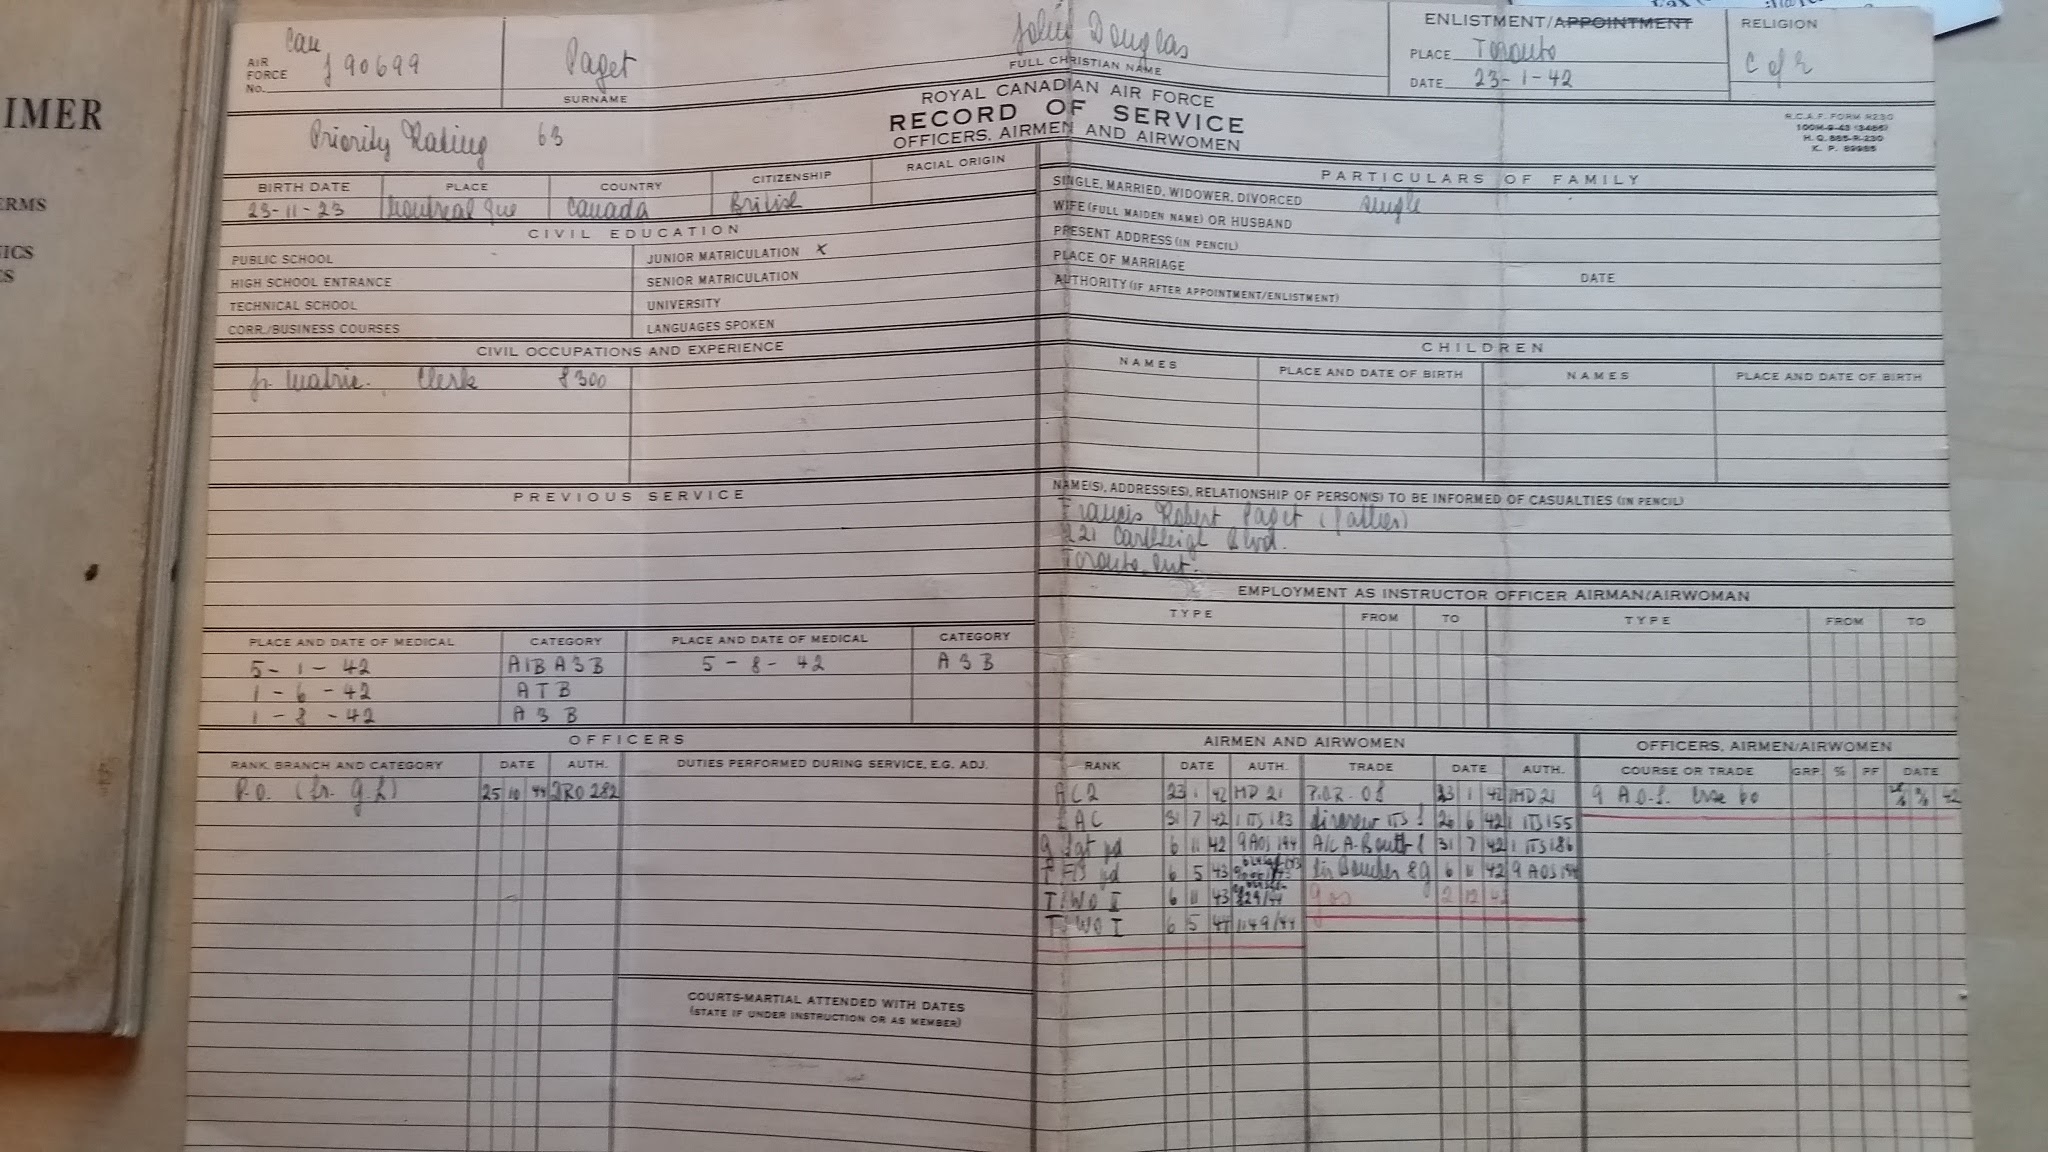 IMER
ERMS
ICS
ES
AIR FORCE No. Can J90699
Paget
SURNAME
John Douglas
FULL CHRISTIAN NAME
ENLISTMENT/APPOINTMENT
PLACE Toronto
DATE 23-1-42
RELIGION
C of E
ROYAL CANADIAN AIR FORCE
RECORD OF SERVICE
OFFICERS, AIRMEN AND AIRWOMEN
Priority Rating 63
R.C.A.F. FORM R230
100M-9-43 (3485)
H. Q. 885-R-230
K. P. 89985
BIRTH DATE PLACE COUNTRY CITIZENSHIP RACIAL ORIGIN
23-11-23 Montreal Que Canada British
PARTICULARS OF FAMILY
SINGLE, MARRIED, WIDOWER, DIVORCED single
WIFE (FULL MAIDEN NAME) OR HUSBAND
PRESENT ADDRESS (IN PENCIL)
PLACE OF MARRIAGE DATE
AUTHORITY (IF AFTER APPOINTMENT/ENLISTMENT)
CIVIL EDUCATION
PUBLIC SCHOOL JUNIOR MATRICULATION X
HIGH SCHOOL ENTRANCE SENIOR MATRICULATION
TECHNICAL SCHOOL UNIVERSITY
CORR./BUSINESS COURSES LANGUAGES SPOKEN
CIVIL OCCUPATIONS AND EXPERIENCE
Jr Matric. Clerk 8300
CHILDREN
NAMES PLACE AND DATE OF BIRTH NAMES PLACE AND DATE OF BIRTH
PREVIOUS SERVICE
NAME(S), ADDRESS(ES), RELATIONSHIP OF PERSON(S) TO BE INFORMED OF CASUALTIES (IN PENCIL)
Francis Robert Paget (father)
221 Blvd.
Toronto, Ont.
EMPLOYMENT AS INSTRUCTOR OFFICER AIRMAN/AIRWOMAN
TYPE FROM TO TYPE FROM TO
PLACE AND DATE OF MEDICAL CATEGORY PLACE AND DATE OF MEDICAL CATEGORY
5-1-42 A1B A3B 5-8-42 A3B
1-6-42 ATB
1-8-42 A3B
OFFICERS
RANK, BRANCH AND CATEGORY DATE AUTH. DUTIES PERFORMED DURING SERVICE, E.G. ADJ.
P.O. 25 10 44 282
COURTS-MARTIAL ATTENDED WITH DATES
(STATE IF UNDER INSTRUCTION OR AS MEMBER)
AIRMEN AND AIRWOMEN
RANK DATE AUTH. TRADE DATE AUTH.
AC2 23 1 42 MD 21 23 1 42 MD 21
LAC 31 7 42 1 ITS 183 Aircrew ITS 26 6 42 1 ITS 155
Sgt pd 6 11 42 9 AOS 194 31 7 42 1 ITS 186
T FS pd 6 5 43 Air Bomber 6 11 42 9 AOS 194
T/WO II 6 11 43 829/44 2 12
T/WO I 6 5 44 1149/44
OFFICERS, AIRMEN/AIRWOMEN
COURSE OR TRADE GRP. % PF DATE
9 A.O.S. 60 42